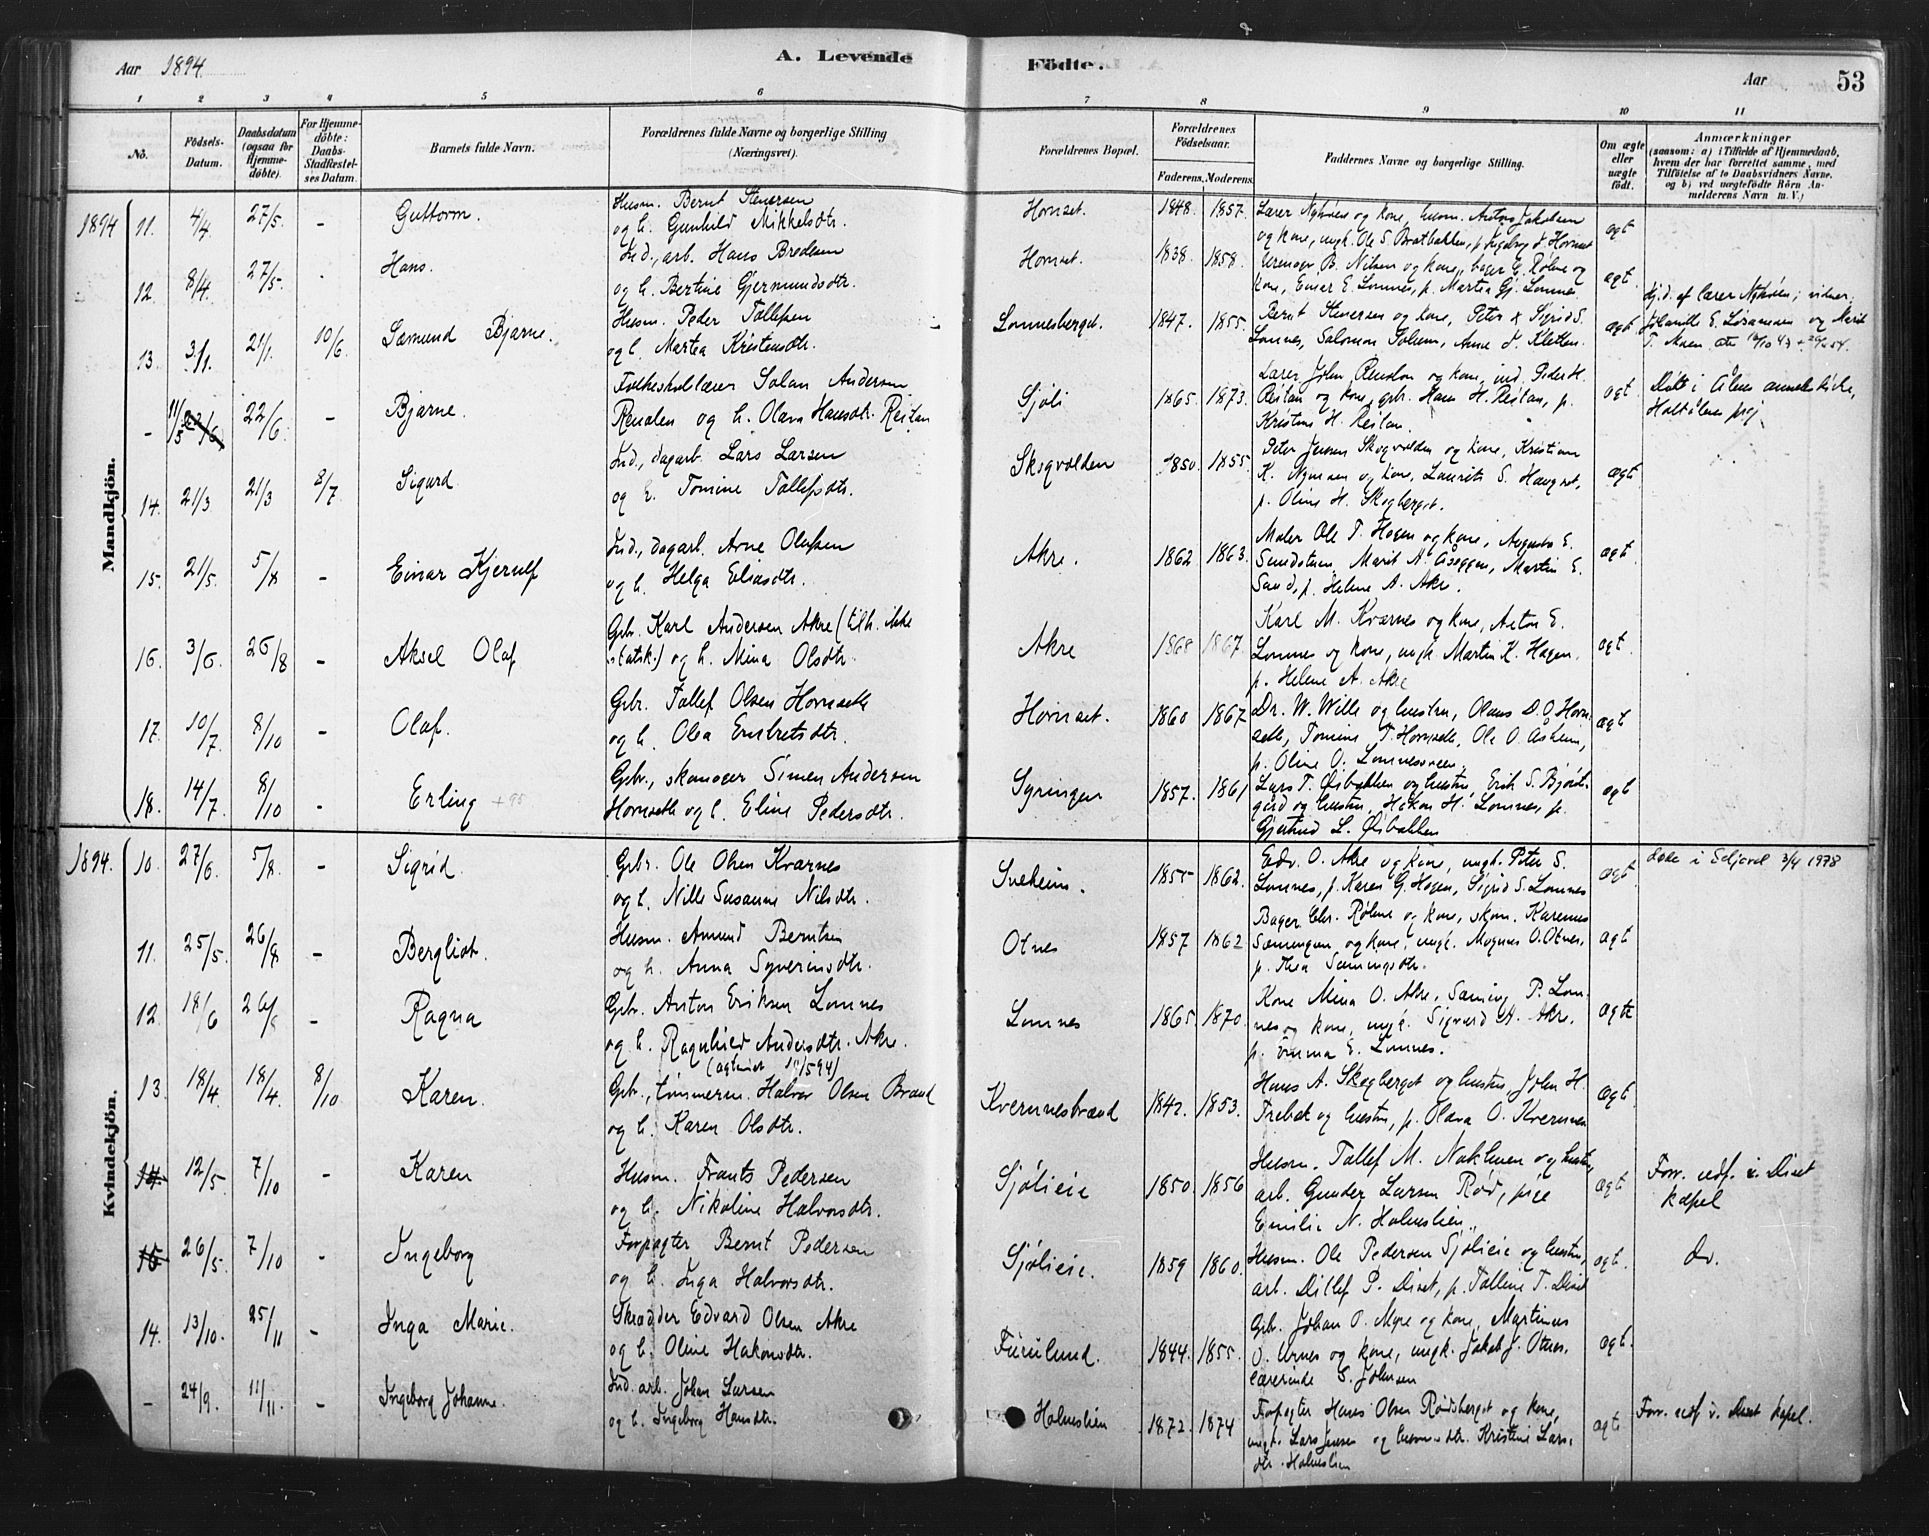 Aar 1894 A. Levende Födte. Aar 53
1 2 3 4 5 6 7 8 9 10 11
No. Födsels-Datum. Daabsdatum (ogsaa for Hjemme-döbte). For Hjemme-döbte: Daabs-Stadfæstel-ses Datum. Barnets fulde Navn. Forældrenes fulde Navne og borgerlige Stilling (Næringsvei). Forældrenes Bopæl. Forældrenes Födselsaar. Faderens. Moderens. Faddernes Navne og borgerlige Stilling. Om ægte eller uægte födt. Anmærkninger (saasom: a) i Tilfælde af Hjemmedaab, hvem der har forrettet samme, med Tilföielse af to Daabsvidners Navne. og b) ved uægtefödte Börn An-melderens Navn m. V.)
Mandkjön.
1894 11. 4/4. 27/5. - Guttorm. Husm. Bernt Stenersen
og h. Gunhild Mikkelsdtr. Hornset. 1848. 1857. Lærer Nyhøen og kone, husm. Anton Jakobsen
og kone, ungk. Ole S. Bratbakken, p. Ingeborg J. Hornset ægt
12. 8/4. 27/5. Hans. Ind., arb. Hans Bredesen
og h. Bertine Gjermundsdtr. Hornset. 1838. 1858. B. Nilsen og kone, bager C. Røhne og
kone, Einar E. Lomnes, p. Martea Gj. Lomnes. ægt.
13. 3/1. 21/1. 10/6. Sæmund Bjarne. Husm. Peder Tollefsen
og h. Martea Kristensdtr. Lomnesberget. 1847. 1855. Bernt Stenersen og kone, Peter & Sigrid S.
Lomnes, Salomon Solum, Anne J. Kletten. ægt Hj.d. af lærer Nyhøen; vidner:
og Marit
T. Moen.
- 11/5 22/6. - Bjarne. Folkeskolelærer Salan Andersen
Renolen og h. Olava Hansdtr. Reitan Sjøli 1865. 1873. Lærer John Renolen og kone, ind. Peder H.
Reitan og kone, gbr. Hans H. Reitan, p.
Kristine H. Reitan. ægt Døbt i Ålen annekskirke,
Holtålens prgj.
14. 21/3. 21/3 8/7. Sigurd. Ind., dagarb. Lars Larsen
og h. Tomine Tollefsdtr. Skogvolden 1850. 1855. Peter Jensen Skogvolden og kone, Kristian
K. Nymoen og kone, Laurits S. Haugset,
p. Oline H. Skogberget. ægt
15. 21/5. 5/8 - Einar Kjerulf Ind., dagarb. Arne Olafsen
og h. Helga Eliasdtr. Akre. 1862 1863. Maler Ole T. Hagen og kone, Augusta E.
Sundstuen, Marit A. Åseggen, Martin E.
Sand, p. Helene A. Akre. ægt
16. 3/6. 26/8 - Aksel Olaf Gbr. Karl Andersen Akre (tilh. ikke
statsk.) og h. Mina Olsdtr. Akre 1868 1867. Karl M. Kværnes og kone, Anton E.
Lomnes og kone, ungk. Martin K. Hagen.
p. Helene A. Akre ægt.
17. 10/7. 8/10 - Olaf. Gbr. Tollef Olsen Hornseth
og h. Olea Embretsdtr. Hornset. 1860 1867. Dr. W. Wille og hustru, Olaus D. O. Horn-
seth, Tomine T. Hornseth, Ole O. Åsheim,
p. Oline O. Lomnesveen. ægt
18. 14/7. 8/10 - Erling + 95 Gbr., skomager Simen Andersen
Hornseth og h. Eline Pedersdtr. Syringen 1857. 1861 Lars T. Øisbakken og hustru, Erik S. Bjørk-
gård og hustru, Håkon H. Lomnes, p.
Gjertrud L. Øisbakken ægt
Kvindekjön.
1894. 10. 27/6. 5/8. - Sigrid. Gbr. Ole Olsen Kværnes
og h. Nille Susanne Nilsdtr. Sveheim. 1855 1862. Edv. O. Akre og kone, ungk. Peter S.
Lomnes, p. Karen G. Hagen, Sigrid S. Lomnes ægt. døde i Seljord 3/4 1978
11. 25/5. 26/8 - Bergliot. Husm. Amund Berntsen
og h. Anna Syverinsdtr. Otnes 1857 1862 Bager Chr. Røhne og kone, skom. Karenus
Sæmingsen og kone, ungk. Magnus O. Otnes,
p. Thea Sæmingsdtr. ægt
12. 18/6 26/8 - Ragna Gbr. Anton Eriksen Lomnes
og h. Ragnhild Andersdtr. Akre. Lomnes 1865. 1870. Kone Mina O. Akre, Sæming P. Lom-
nes og kone, ungk. Sigvard A. Akre,
p. Emma E. Lomnes. ægte
13. 18/4. 18/4. 8/10 Karen. Gbr., tømmerm. Halvor Olsen Brænd
og h. Karen Olsdtr. Kvernnesbrænd 1842. 1853. Hans A. Skogberget og hustru, John H.
Trebak og hustru, p. Olava O. Kvernnes ægt
14. 12/5. 7/10 - Karen Husm. Frants Pedersen
og h. Nikoline Halvorsdtr. Sjølieie 1850. 1856 Husm. Tollef M. Nakhuen og hustru,
arb. Gunder Larsen Rød, pige
Emilie N. Holmslien. ægt Forr. udf. i Diset
kapel
15 26/5. 7/10 - Ingeborg Forpagter Bernt Pedersen
og h. Inga Halvorsdtr. Sjølieie. 1859 1860. Husm. Ole Pedersen Sjølieie og hustru,
arb. Ditlef P. Diset, p. Tolline T. Diset ægt. do.
14. 13/10. 25/11 - Inga Marie. Skrædder Edvard Olsen Akre
og h. Oline Håkonsdtr. Furulund. 1844. 1855. Gbr. Johan O. Myre og kone, Martinus
O. Urnes og kone, ungk. Jakob J. Otnes.
lærerinde S. Johnsen ægt.
- 24/9. 11/11. Ingeborg Johanne. Ind. arb. Johan Larsen
og h. Ingeborg Hansdtr. Holmslien 1872. 1874 Forpagter Hans Olsen Rødsberget og kone,
ungk. Lars Jensen og husm.dtr. Kristine Lars-
dtr. Holmslien ægt. Forr. udf. i Diset kapel.